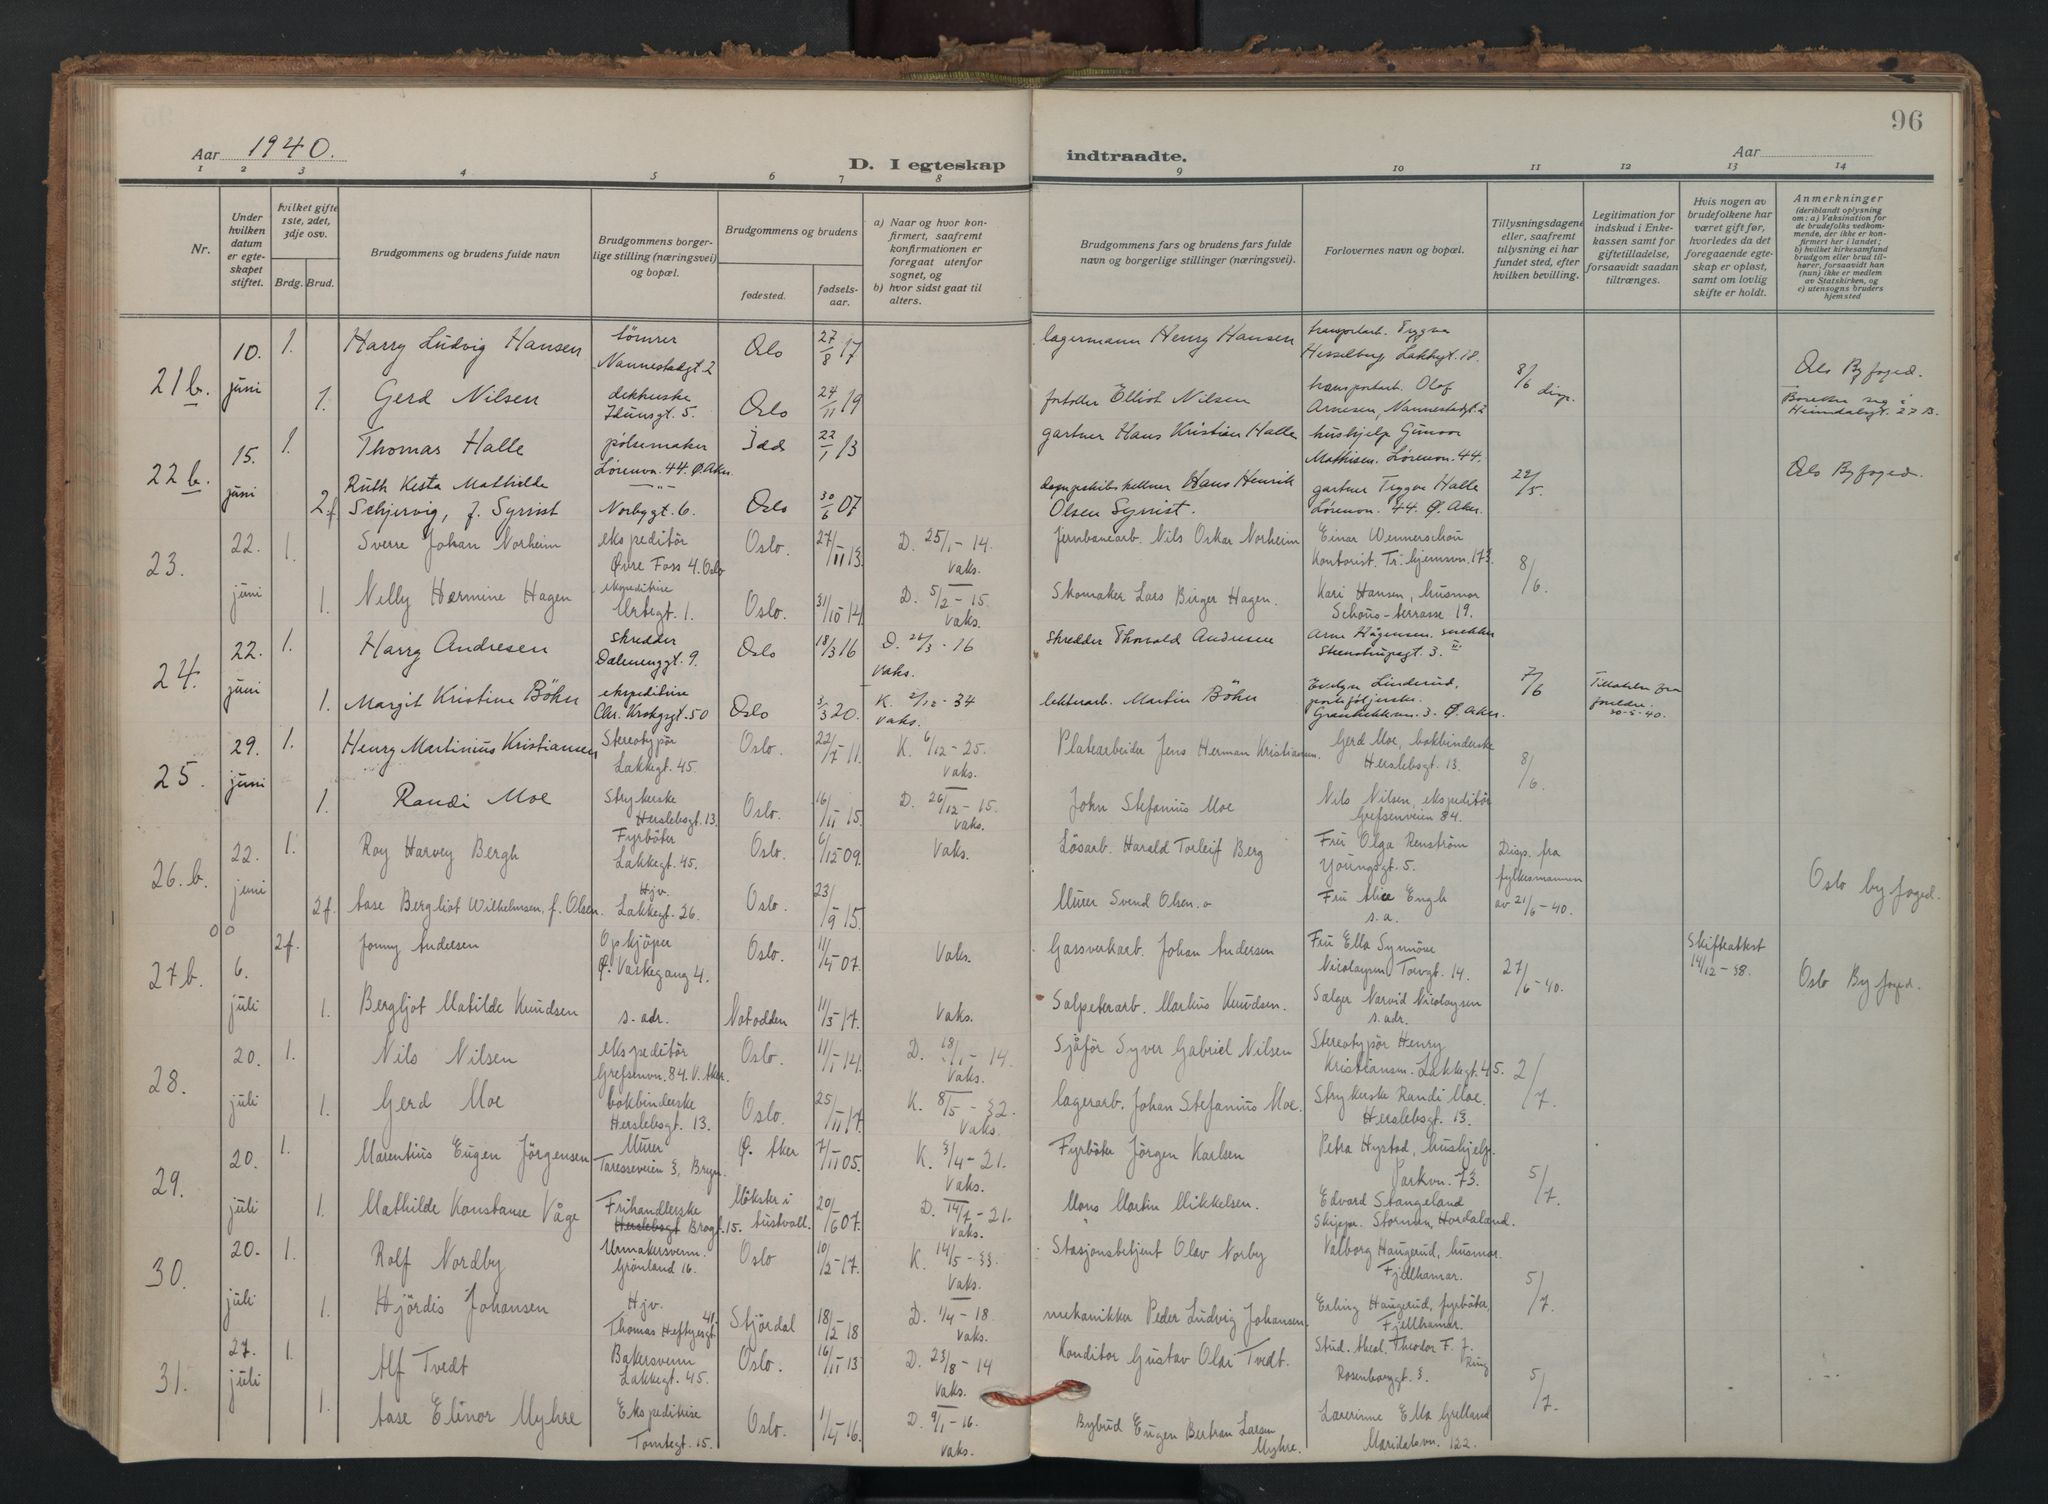 96
Aar 1940.
D. I egteskap indtraadte.
Aar
1 2 3 4 5 6 7 8 9 10 11 12 13 14
Nr.
Under hvilken datum er egteskapet stiftet.
hvilket gifte 1ste, 2det, 3dje osv.
Brdg. Brud.
Brudgommens og brudens fulde navn
Brudgommens borgerlige stilling (næringsvei) og bopæl.
Brudgommens og brudens
fødested.
fødselsaar.
a) Naar og hvor konfirmert, saafremt konfirmationen er foregaat utenfor sognet, og
b) hvor sidst gaat til alters.
Brudgommens fars og brudens fars fulde navn og borgerlige stillinger (næringsvei).
Forlovernes navn og bopæl.
Tillysningsdagene eller, saafremt tillysning ei har fundet sted, efter hvilken bevilling.
Legitimation for indskud i Enkekassen samt for giftetilladelse, forsaavidt saadan tiltrænges.
Hvis nogen av brudefolkene har været gift før, hvorledes da det foregaaende egteskap er opløst, samt om lovlig skifte er holdt.
Anmerkninger
(deriblandt oplysning om: a) Vaksination for de brudefolks vedkommende, der ikke er konfirmert her i landet; b) hvilket kirkesamfund brudgom eller brud tilhører, forsaavidt han (hun) ikke er medlem av Statskirken, og c) utensogns bruders hjemsted
21 b. 10. juni 1. Harry Ludvig Hansen tømrer Nannestadgt 2 Oslo 27/8 17 lagermann Henry Hansen transportarb. Trygve Hesselberg Lakkegt. 18. 8/6 disp. Oslo Byfoged.
1. Gerd Nilsen Idunsgt. 5 Oslo 24/11 19 Elliot Nilsen transportarb. Olof Arnesen, Nannestadgt. 2 Heimdalsgt. 27 B.
22 b. 15. juni 1. Thomas Halle pølsemaker Lørenvn. 44. Ø. Aker Idd 22/1 13 gartner Hans Kristian Halle hushjelp Gunvor Mathisen. Lørenvn. 44. 22/5. Oslo Byfoged.
2 f. Ruth Kesta Mathilde Schjervig, f. Syrrist Norbygt. 6. Oslo 30/6 07 Hans Henrik Olsen Syrrist. gartner Trygve Halle Lørenvn. 44. Ø. Aker.
23. 22. juni 1. Sverre Johan Norheim ekspeditör Øvre Foss 4. Oslo Oslo. 27/11 13. D. 25/1 - 14. Vaks. Jernbanearb. Nils Oskar Norheim Einar Wennerschou Kontorist. Tr.hjemsvn. 173. 8/6.
1. Nelly Hermine Hagen ekspeditrise Urtegt. 1. Oslo. 31/10 14. D. 5/2 - 15. Vaks. Skomaker Lars Birger Hagen. Kari Hansen, husmor Schous-terrasse 19.
24. 22. juni 1. Harry Andresen skredder Dælenenggt. 9. Oslo 18/3 16 D. 26/3 - 16 Vaks. skredder Thorvald Andresen Arne Hågensen. snekker Steenstrupsgt. 3. II 7/6
1. Margit Kristine Böhn ekspeditrise Chr. Krohgsgt. 50 Oslo 3/3 20. K. 2/12 - 34 Vaks. Martin Böhn Evelyn Linderud, Ø. Aker. Tillatelse fra foreldre. 30-5-40.
25. 29. juni 1. Henry Martinius Kristiansen Stereotypör Lakkegt. 45. Oslo. 22/7 11. K. 6/12 - 25. Vaks. Platearbeider Jens Herman Kristiansen. Gerd Moe, bokbinderske Herslebsgt. 13. 8/6.
1. Randi Moe Strykerske Herslebsgt. 13. Oslo. 16/11 15. D. 26/12 - 15. Vaks. John Stefanius Moe Nils Nilsen, ekspeditör Grefsenveien 84.
26. b. 22. juni 1. Roy Harvey Bergh Fyrböter Lakkegt. 45. Oslo. 6/12 09. Vaks. Lösarb. Harald Torleif Berg Fru Olga Renström Youngsgt. 5. Disp. fra fylkesmannen av 21/6 - 40. Oslo byfoged.
2 f. Aase Bergliot Wilhelmsen, f. Olsen. Hjv. Lakkegt. 26. Oslo. 23/9 15. Murer Svend Olsen. Fru Alice Engh s.a.
27 b. 6. juli 2 f. Jonny Andersen Opkjöper Ø. Vaskegang 4. Oslo. 11/4 07. Vaks. Gassverkarb. Johan Andersen Fru Ella Synnöve Nicolaysen Torvgt. 14. 27/6 - 40. Skifteattest 14/12 - 38. Oslo Byfoged.
1. Bergljot Matilde Knudsen s. adr. Notodden 11/3 17. Vaks. Salpeterarb. Markus Knudsen. Selger Narvid Nicolaysen s. adr.
28. 20. juli 1. Nils Nilsen ekspeditör Grefsenvn. 84. V. Aker. Oslo. 11/1 14. D. 18/1 - 14. Vaks. Sjåför Syver Gabriel Nilsen Stereotypör Henry Kristiansen. Lakkegt. 45. 2/7
1. Gerd Moe bokbinderske Herslebsgt. 13. Oslo. 25/11 17. K. 8/5 - 32. Vaks. lagerarb. Johan Stefanius Moe. Strykerske Randi Moe. Herslebsgt. 13.
29. 20. juli 1. Marentius Eugen Jörgensen Murer Taresseveien 3, Bryn. Ø. Aker 7/11 05. K. 3/4 - 21. Vaks. Fyrböter Jörgen Karlsen Petra Hystad, hushjelp. Parkvn. 73. 5/7.
1. Mathilde Konstanse Våge Frihandlerske Herslebsgt Brogt. 15. Mökster i Austvoll. 20/6 07. D. 14/7 - 21. Vaks. Mons Martin Mikkelsen. Edvard Stangeland Skipper. Stormen, Hordaland.
30. 20. juli 1. Rolf Nordby Urmakersvenn. Grönland 16. Oslo 10/2 17. K. 14/5 - 33. Vaks. Stasjonsbetjent Olav Norby Valborg Haugerud, husmor. Fjellhamar. 5/7.
1. Hjördis Johansen Hjv. Thomas Heftyesgt 41. Stjördal 18/2 18 D. 1/4 - 18. Vaks. mekanikker Peder Ludvig Johansen. Erling Haugerud, fyrböter, Fjellhamar.
31. 27. juli 1. Alf Tvedt Bakersvenn Lakkegt. 45. Oslo. 16/11 13 D. 23/8 - 14 Vaks. Konditor Gustav Olai Tvedt. Stud. theol. Theodor F. J. Ring Rosenborggt. 3. 5/7.
1. Aase Elinor Myhre Ekspeditrise Tomtegt. 15. Oslo. 1/4 16. D. 9/1 - 16. Vaks. Bybud Eugen Bertran Larsen Myhre. Lærerinne Ella Grelland Maridalsvn. 122.